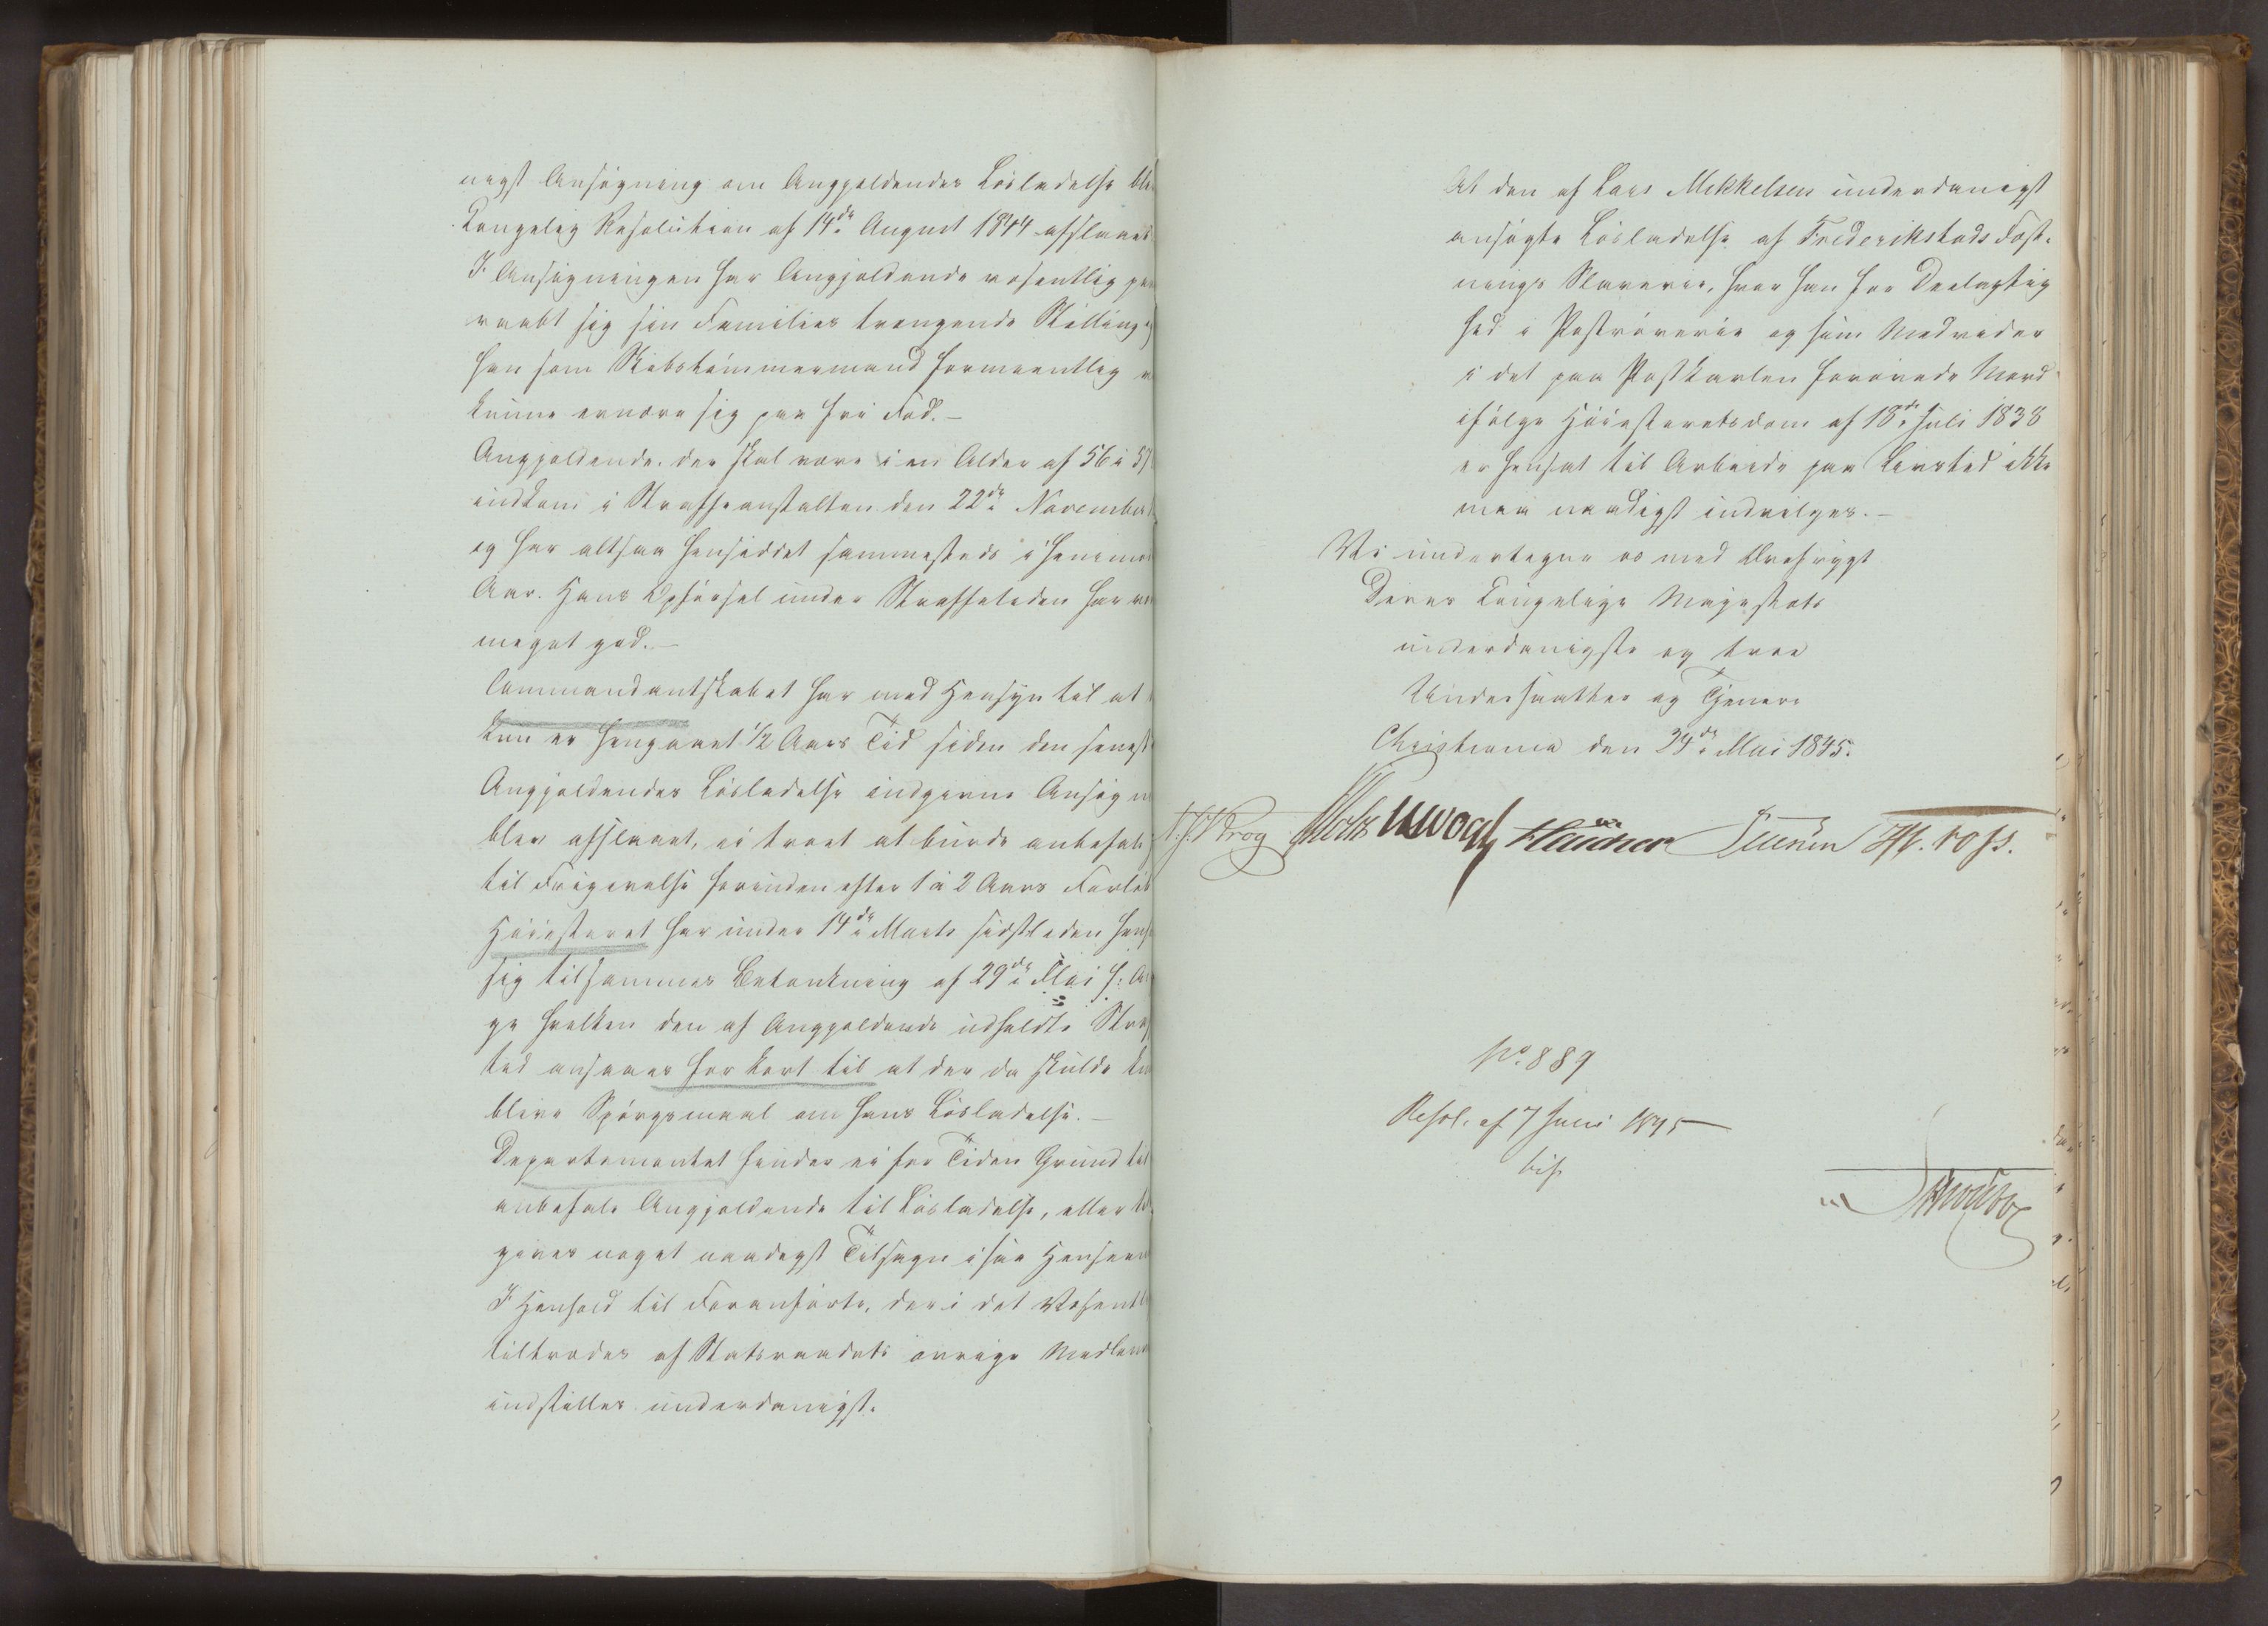 nigst Ansøgning om Angjeldendes Løsladelse ble
Kongelig Resolution af 14de August 1844 afslaaet
I Ansøgningen har Angjeldende væsentlig paa
raabt sig sin Families trængende Stilling og
han som Skibstømmermand formeentlig
kunne ernære sig paa fri Fod. –
Angjeldende, der skal være i en Alder af 56 à 57
indkom i Straffeanstalten den 22de November
og har altsaa hensiddet sammesteds i henimod
Aar. Hans Opførsel under Straffetiden har
meget god. –
Commandantskabet har med Hensyn til at
kun er hengaaet 1/2 Aars Tid siden den senest
Angjeldendes Løsladelse indgivne Ansøgn
blev afslaaet, ei troet at burde anbefale
til Frigivelse forinden efter 1 à 2 Aars Forløb
Høiesteret har under 14de Marts sidstleden hen
sig til sammes Betænkning af 29de Mai f: A
ge hvilken den af Angjeldende udholdte Straf
tid ansaaes for kort til at der da skulde ku
blive Spørgsmaal om hans Løsladelse. –
Departementet finder ei for Tiden Grund til
anbefale Angjeldende til Løsladelse, eller til
gives noget naadigst Tilsagn i saa Henseen
I Henhold til Foranførte, der i det Væsentl
tiltrædes af Statsraadets øvrige Medlem
indstilles underdanigst.
At den af Lars Mekkelsen underdanigst
ansøgte Løsladelse af Frederikstads Fæst-
nings Slaverie, hvor han for Deelagtig
hed i Postrøverie og som Medvider
i det paa Postkarlen forøvede Mord
ifølge Høiesteretsdom af 18de Juli 1838
er hensat til Arbeide paa Livstid ikke
maa naadigst indvilges. –
Vi undertegne os med Ærefrygt
Deres Kongelige Majestæts
underdanigste og troe
Undersaatter og Tjenere
Christiania den 24de Mai 1845.
Krog Holst Vogt
No. 889
Resol. af 7 Juni 1845
bif.